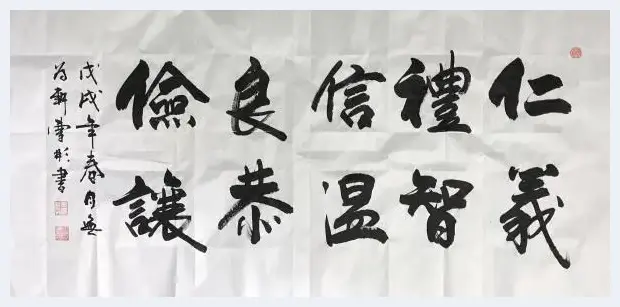 仁義
禮智
信温
良恭
儉讓
戊戌年春月無
書